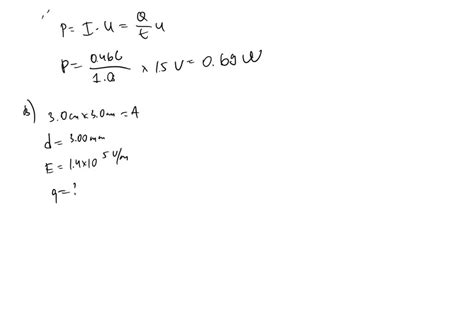 P = I · U = Q/t U
P = 0.46C/1.0 × 1.5 V = 0.69 W
3.0cm × 3.0cm = A
d = 3.00mm
E = 1.4×10⁵ V/m
q = ?